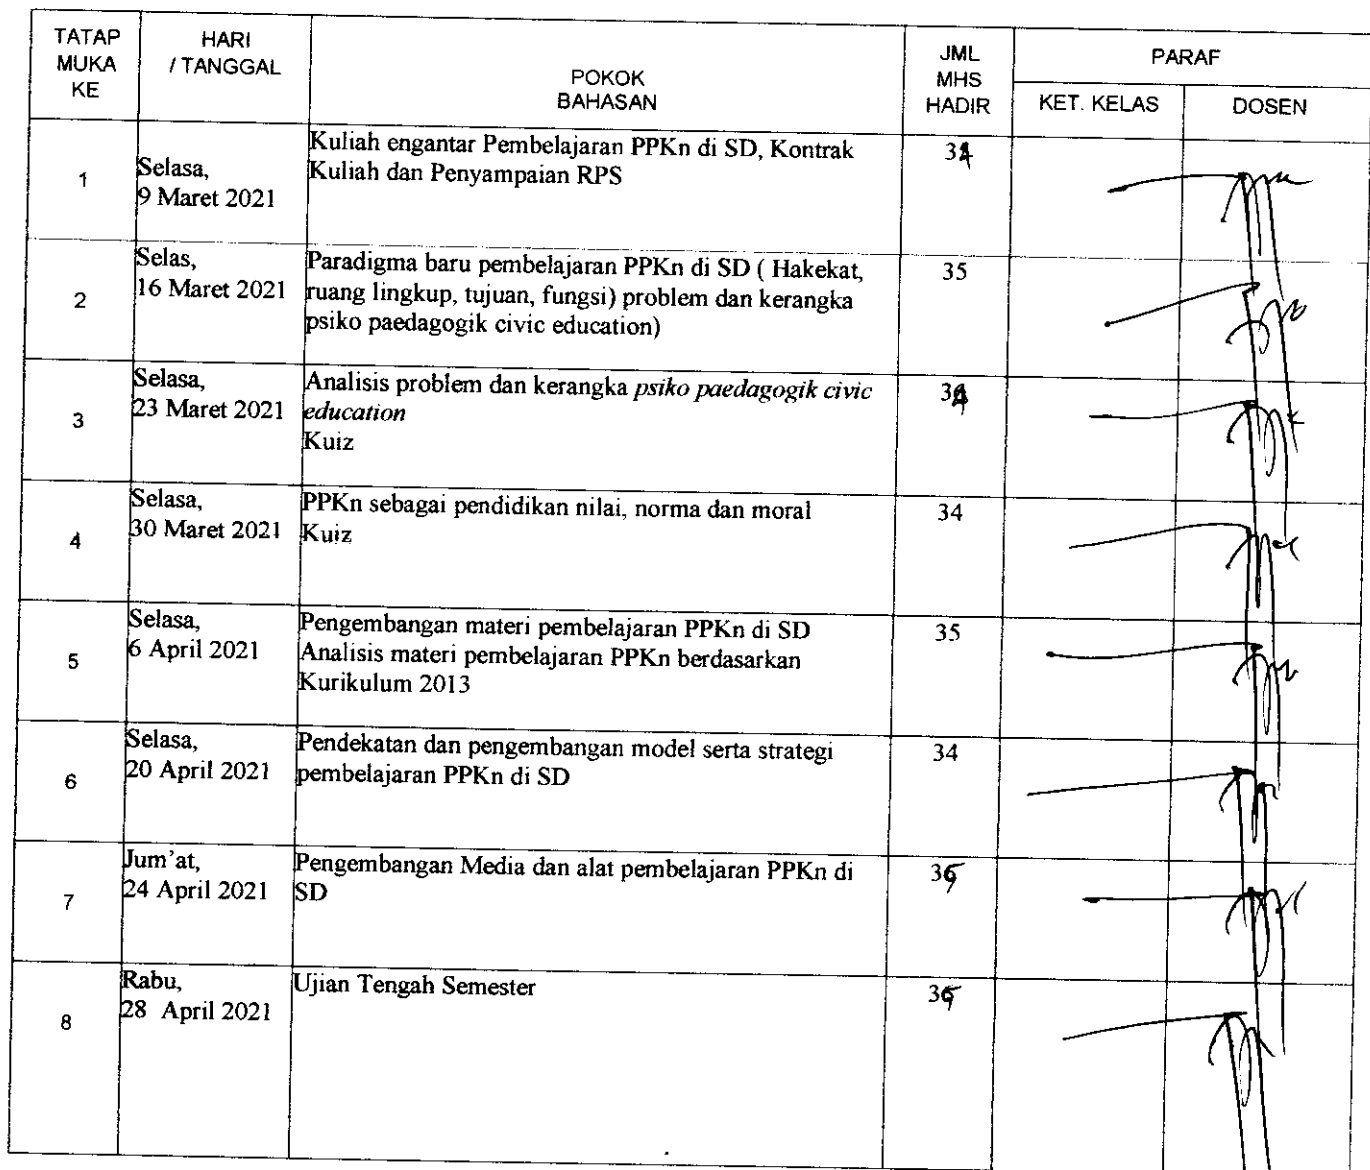 TATAP
MUKA
KE
HARI
/ TANGGAL
POKOK
BAHASAN
JML
MHS
HADIR
PARAF
KET. KELAS
DOSEN
1
Selasa,
9 Maret 2021
Kuliah engantar Pembelajaran PPKn di SD, Kontrak
Kuliah dan Penyampaian RPS
2
Selas,
16 Maret 2021
Paradigma baru pembelajaran PPKn di SD ( Hakekat,
ruang lingkup, tujuan, fungsi) problem dan kerangka
psiko paedagogik civic education)
35
3
Selasa,
23 Maret 2021
Analisis problem dan kerangka psiko paedagogik civic
education
Kuiz
4
Selasa,
30 Maret 2021
PPKn sebagai pendidikan nilai, norma dan moral
Kuiz
34
5
Selasa,
6 April 2021
Pengembangan materi pembelajaran PPKn di SD
Analisis materi pembelajaran PPKn berdasarkan
Kurikulum 2013
35
6
Selasa,
20 April 2021
Pendekatan dan pengembangan model serta strategi
pembelajaran PPKn di SD
34
7
Jum'at,
24 April 2021
Pengembangan Media dan alat pembelajaran PPKn di
SD
8
Rabu,
28 April 2021
Ujian Tengah Semester